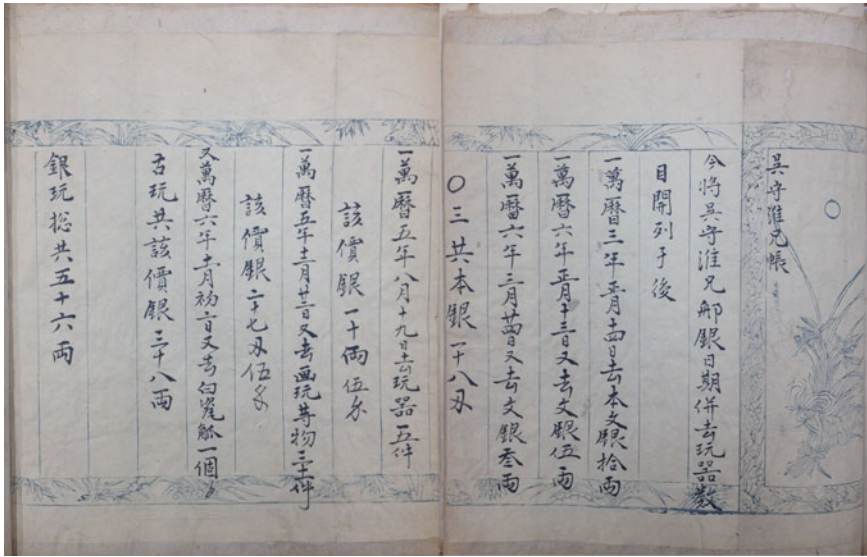 吳守淮兄帳
今將吳守淮兄那銀日期併去玩器数
目開列于後
一萬曆三年正月十四日去本文銀拾両
一萬曆六年正月十三日又去文銀伍両
一萬曆六年二月廿四日又去文銀叁両
〇三共本銀一十八刄
一萬曆五年八月十九日去玩器一五件
該價銀一十両伍
一萬曆五年十二月廿三日又去画玩等物三十一件
該價銀二十七刄伍
又萬曆六年月初日又去白瓷觚一個
古玩共該價銀三十八両
銀玩総共五十六両